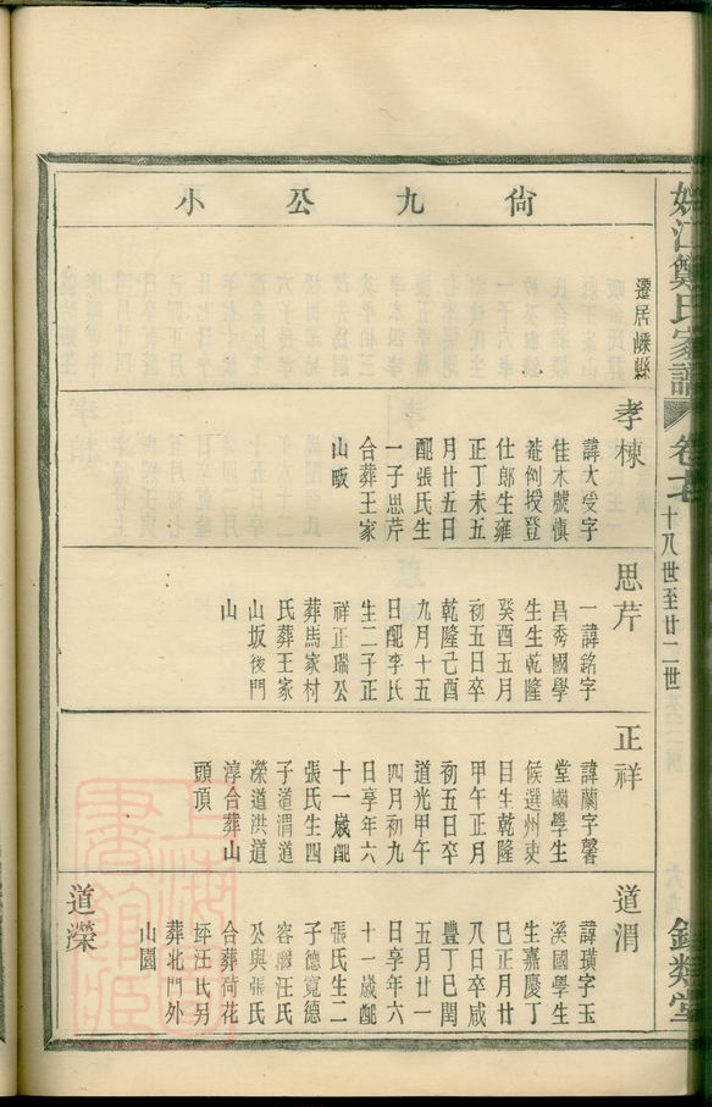 江鄭氏家譜
卷
十八世至廿二世
類堂
尙九公小
遷居嵊縣
孝棟
諱大受字
佳木號慎
菴例授登
仕郎生雍
正丁未五
月廿五日
配張氏生
一子思芹
合葬王家
山畈
思芹
一諱銘字
昌秀國學
生生乾隆
癸酉五月
初五日卒
乾隆己酉
九月十五
日配李氏
生二子正
祥正瑞公
葬馬家村
氏葬王家
山坂後門
山
正祥
諱蘭字馨
堂國學生
候選州吏
目生乾隆
甲午正月
初五日卒
道光甲午
四月初九
日享年六
十一歲配
張氏生四
子道渭道
濚道洪道
淳合葬山
頭頂
道渭
諱璜字玉
溪國學生
生嘉慶丁
巳正月廿
八日卒咸
豐丁巳閏
五月廿一
日享年六
十一歲配
張氏生二
子德寬德
容繼汪氏
公與張氏
合葬荷花
坪汪氏另
葬北門外
山園
道濚
上海圖書館藏